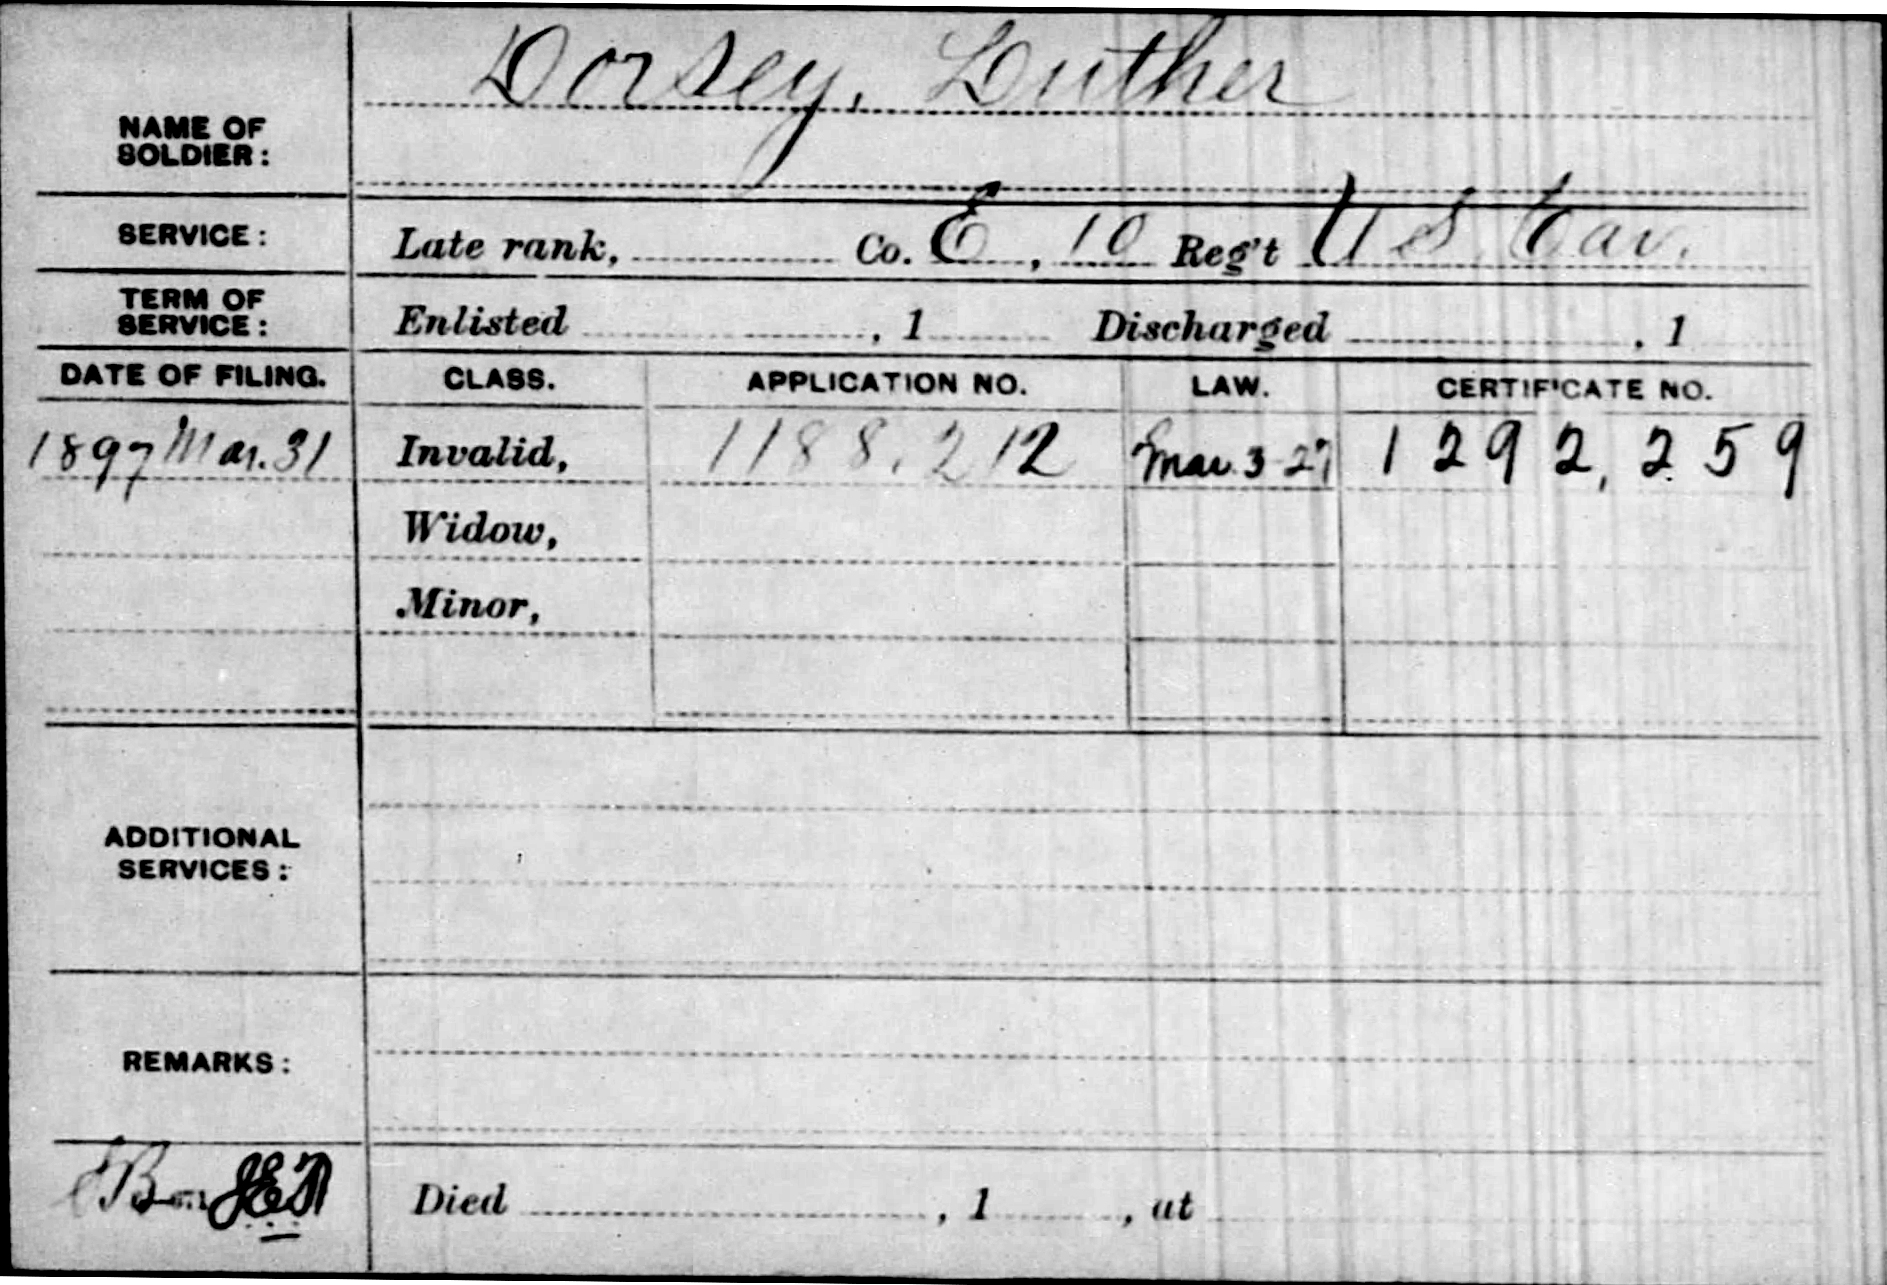 Dorsey, Luther
NAME OF
SOLDIER:
SERVICE: Late rank, Co. E, 10 Reg't U S. Cav.
TERM OF
SERVICE: Enlisted , 1 Discharged , 1
DATE OF FILING. CLASS. APPLICATION NO. LAW. CERTIFICATE NO.
1897 Mar. 31 Invalid, 1188.212 Mar 3-27 1292,259
Widow,
Minor,
ADDITIONAL
SERVICES:
REMARKS:
Died , 1 , at